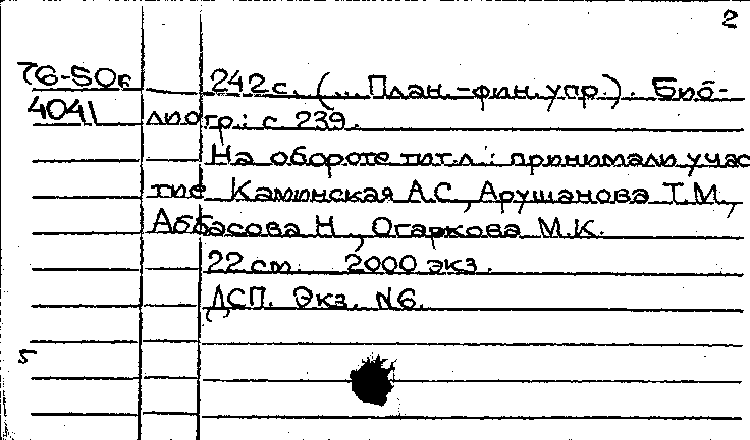 2
76-50г 242 с. (... План.-фин. упр.). Биб-
4041 лиогр.: с 239.
На обороте тит.л.: принимали учас
тие Каминская А.С., Арушанова Т.М.,
Аббасова Н., Огаркова М.К.
22 см. 2000 экз.
ДСП. Экз. N6.
5